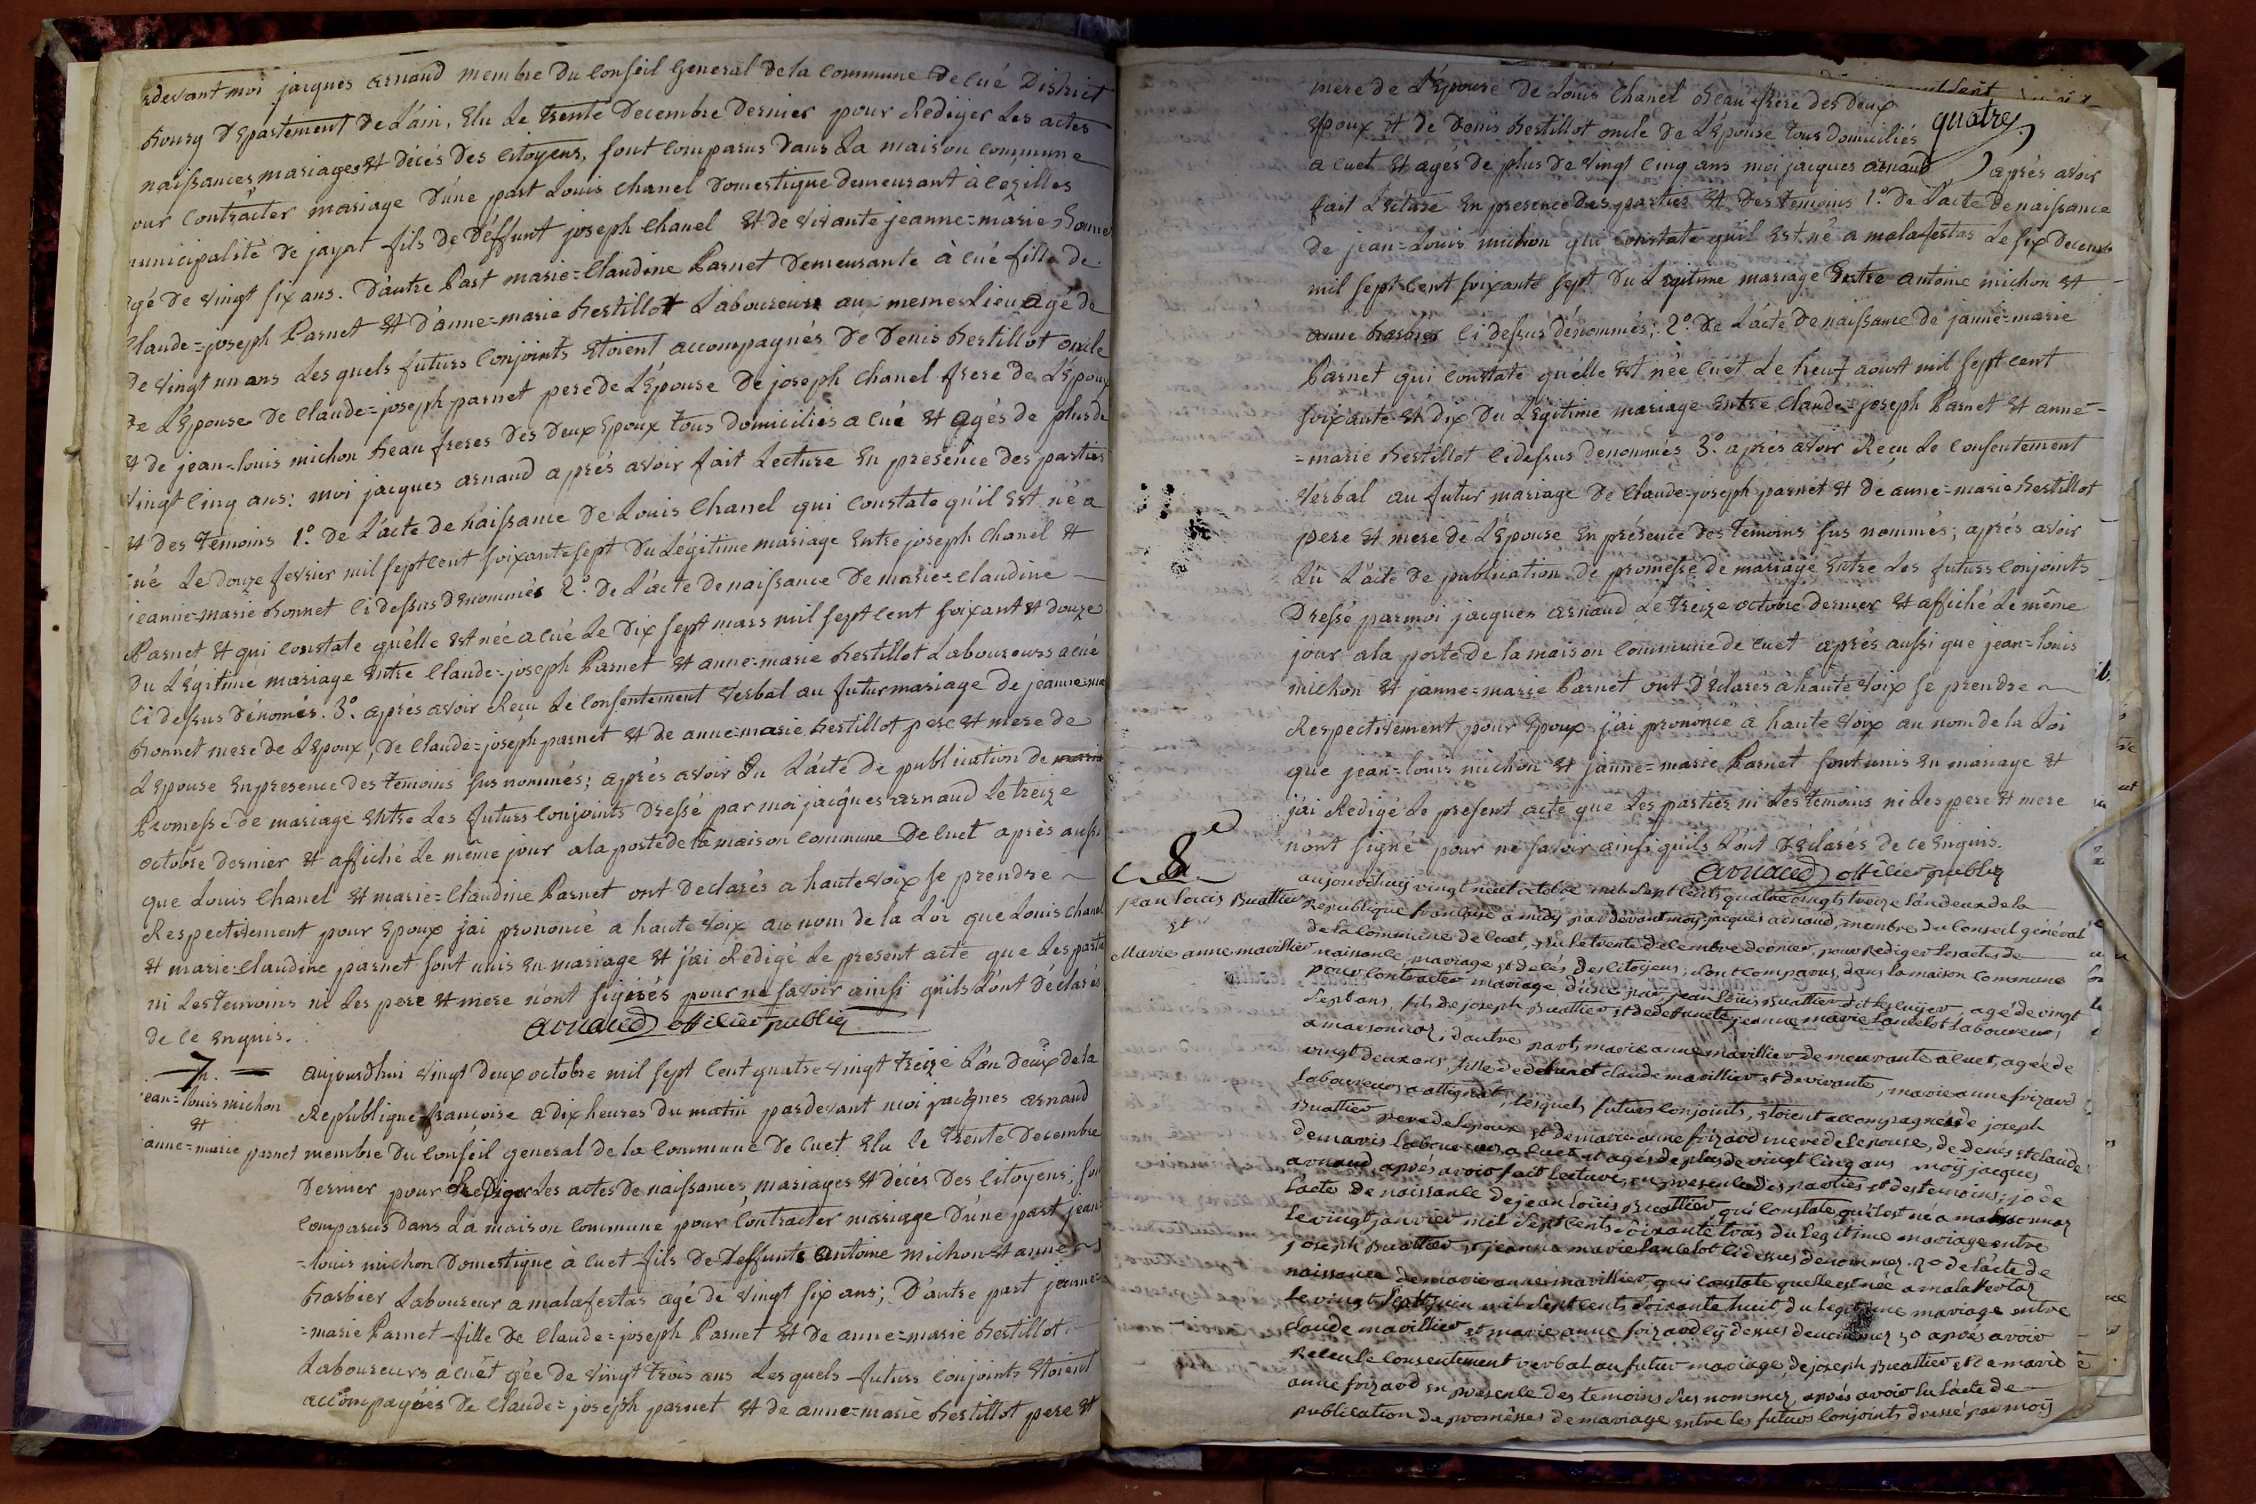 devant moi jacques arnaud membre du Conseil General de la Commune de cué District
bourg Departement de L'ain, Elu Le trente Decembre Dernier pour Rediger Les actes
naissances mariages et décés des Citoyens, sont comparus dans La maison commune
our Contracter mariage D'une part Louis chanel Domestique demeurant à
unicipalité de jayat fils de Deffunt joseph chanel et de vivante jeanne=marie Bonnet
agé de vingt six ans. D'autre Part marie=claudine Parnet Demeurante à cué fille de
Claude=joseph Parnet et d'anne=marie Bestillot Laboureurs au meme Lieu agé de
de vingt un ans Les quels futurs Conjoints Etoient accompagnés de Denis Bestillot oncle
De L'Epouse de Claude=joseph parnet pere de L'Epouse de joseph chanel frere de L'Epoux
et de jean=louis michon beau freres des deux Epoux tous domiciliés a cué et agés de plus de
vingt cinq ans: moi jacques arnaud aprés avoir fait Lecture En presence des parties
et des temoins 1º. de L'acte de naissance de Louis Chanel qui constate qu'il est né a
cué Le douze fevrier mil sept cent soixante sept du Légitime mariage Entre joseph chanel et
jeanne=marie bonnet ci dessus denommés 2º. de L'acte de naissance de marie=claudine
Parnet et qui constate qu'elle est née a cué Le dix sept mars mil sept cent soixant et douze
du Légitime mariage Entre Claude=joseph Parnet et anne=marie bestillot Laboureurs a cué
Ci dessus dénomés. 3º. aprés avoir Reçu Le consentement verbal au futur mariage de jeanne=ma
Bonnet mere de L'epoux, de Claude=joseph parnet et de anne=marie bestillot pere et mere de
L'epouse En presence des temoins sus nommés; aprés avoir Lu L'acte de publication de
Promesse de mariage Entre Les futurs conjoints Dressé par moi jacques arnaud Le treize
octobre dernier et affiché Le même jour a la porte de la maison commune de cuet aprés aussi
que Louis Chanel et marie=Claudine Parnet ont declarés a haute voix se prendre
Respectivement pour Epoux jai prononcé à haute voix au nom de la Loi que Louis chanel
et marie=claudine parnet sont unis en mariage et j'ai Redigé Le present acte que Les parti
ni Les temoins ni Les pere et mere n'ont signés pour ne savoir ainsi qu'ils L'ont déclarés
de ce Enquis.
arnaud officier public
7.
ean=louis michon
et
anne=marie parnet
aujourdhui vingt deux octobre mil sept Cent quatre vingt treize L'an deux de la
Republique françoise a dix heures du matin pardevant moi jacques arnaud
membre du Conseil general de la Commune de cuet Elu Le trente Decembre
Dernier pour Rediger Les actes de naissances, mariages et décés des Citoyens; son
Comparus dans La maison Commune pour Contracter mariage D'une part jean
=louis michon Domestique à cuet fils de Deffunts antoine michon et anne
barbier Laboureur a malafertas agé de vingt six ans; D'autre part jeanne=
=marie Parnet fille de Claude=joseph Parnet et de anne=marie bestillot
Laboureurs a cuét gée de vingt trois ans Les quels futurs conjoints Etoient
accompagnés de Claude=joseph parnet et de anne=marie bestillot pere et
quatre
mere de L'Epouse de Louis Chanel beau frere des deux
Epoux et de denis bestillot oncle de L'Epouse tous domiciliés
a cuet et agés de plus de vingt cinq ans moi jacques arnaud aprés avoir
fait Lecture En presence des parties et des temoins 1º. de L'acte de naissance
de jean=Louis michon qui constate qu'il est né a malafertas Le six decembre
mil sept cent soixante sept du Legitime mariage Entre antoine michon et
anne barbier ci dessus dénommés; 2º. de L'acte de naissance de janne=marie
Parnet qui constate qu'elle est née cuét Le neuf aoust mil sept cent
soixante et dix du Légitime mariage Entre Claude=joseph Parnet et anne=
=marie bestillot ci dessus denommés 3º. aprés avoir Reçu Le consentement
Verbal au futur mariage de Claude=joseph parnet et de anne=marie bestillot
pere et mere de L'Epouse En présence des temoins sus nommés; aprés avoir
Lû L'acte de publication de promesse de mariage Entre Les futurs conjoints
Dressé par moi jacques arnaud Le treize octobre dernier et affiché Le même
jour a la porte de la maison Commune de cuet aprés aussi que jean=louis
michon et janne=marie Parnet ont déclarés à haute voix se prendre
Respectivement pour Epoux j'ai prononcé à haute voix au nom de la Loi
que jean=louis michon et janne=marie Parnet sont unis en mariage et
j'ai Redigé Le present acte que Les parties ni Les temoins ni Les pere et mere
n'ont signé pour ne savoir ainsi qu'ils L'ont déclarés de ce Enquis.
arnaud officier public
8e
jean louis Buattier
et
Marie anne mavillier
aujourdhuy vingt neuf octobre mil sept cents quatre vingts treize l'an deux de la
republique françoise a midy par devant moy jacques arnaud, membre du Conseil général
de la commune de cuet, elu le trente decembre dernier, pour Rediger les actes de
naissance mariage et décés des citoyens, sont comparus, dans la maison commune
pour contracter mariage d'une part jean Louis Buattier dit , agé de vingt
sept ans, fils de joseph Buattier et de defuncte jeanne marie Lancelot laboureurs,
a marsonnaz, d'autre part marie anne mavillier demeurante a cuet, agée de
vingt deux ans, fille de defunct claude mavillier et de vivante, marie anne foizard
Laboureurs a attignat, lesquels futurs conjoints, etoient accompagnés de joseph
Buattier pere de lepoux et de marie anne foizard mere de lepouse, de denis et claude
demaris laboureurs a cuet et agés de plus de vingt cinq ans moÿ jacques
arnaud aprés avoir fait lecture, en presence des parties et des temoins; 1o de
l'acte de naissance de jean louis Buattier, qui constate, qu'il est né a marsonnaz
le vingt janvier mil sept cents soixante trois du legitime mariage entre
joseph Buattier et jeanne marie lancelot ci dessus denommez. 2o de l'acte de
naissance de marie anne mavillier qui constate quelle est née a malafertaz
le vingt sept juin mil sept cents soixante huit du legitime mariage entre
claude mavillier et marie anne foizard cy dessus denommez 3o aprés avoir
receu le consentement verbal au futur mariage, de joseph Buattier et de marie
anne foizard en presence des temoins sus nommez, aprés avoir lu l'acte de
publication de promesses de mariage entre les futurs conjoints dressé par moÿ